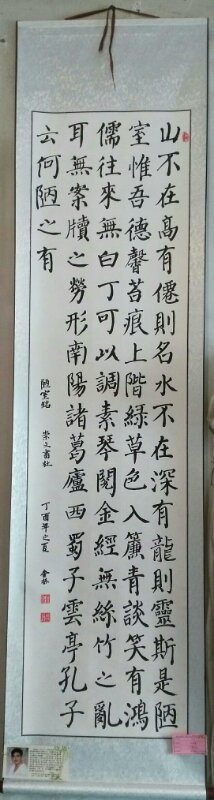 山不在高有僊則名水不在深有龍則靈斯是陋
室惟吾德馨苔痕上階綠草色入簾青談笑有鴻
儒往來無白丁可以調素琴閱金經無絲竹之亂
耳無案牘之勞形南陽諸葛廬西蜀子雲亭孔子
云何陋之有
陋室銘 崇文書社 丁酉年之夏